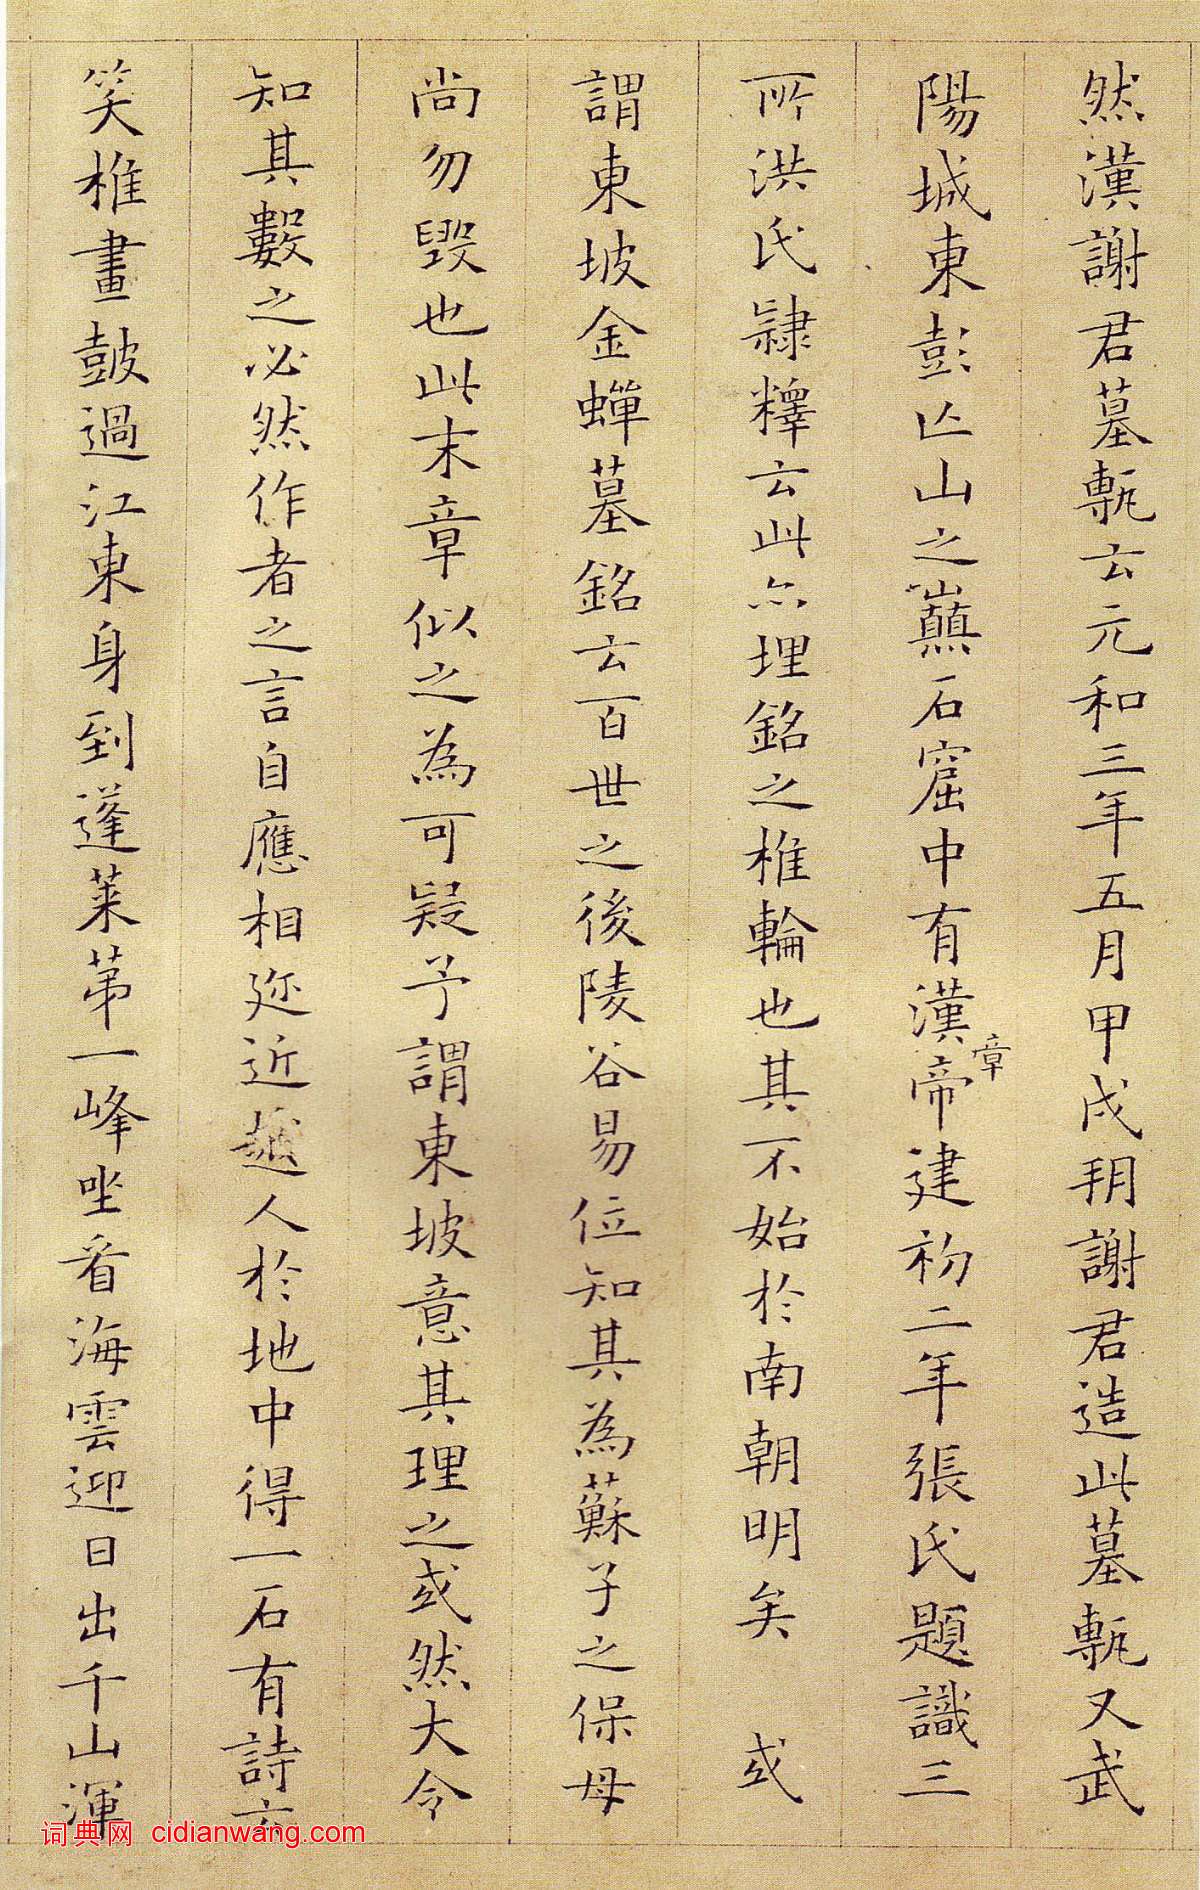 然漢謝君墓甎云元和三年五月甲戌朔謝君造此墓甎又武
陽城東彭亾山之巔石窟中有漢章帝建初二年張氏題識三
所洪氏隷釋云此亦埋銘之椎輪也其不始於南朝明矣 或
謂東坡金蟬墓銘云百世之後陵谷易位知其為蘇子之保母
尚勿毀也此末章似之為可疑予謂東坡意其理之或然大令
知其數之必然作者之言自應相迩近越人於地中得一石有詩云
笑椎畫鼓過江東身到蓬莱苐一峰坐看海雲迎日出千山渾
词典网 cidianwang.com